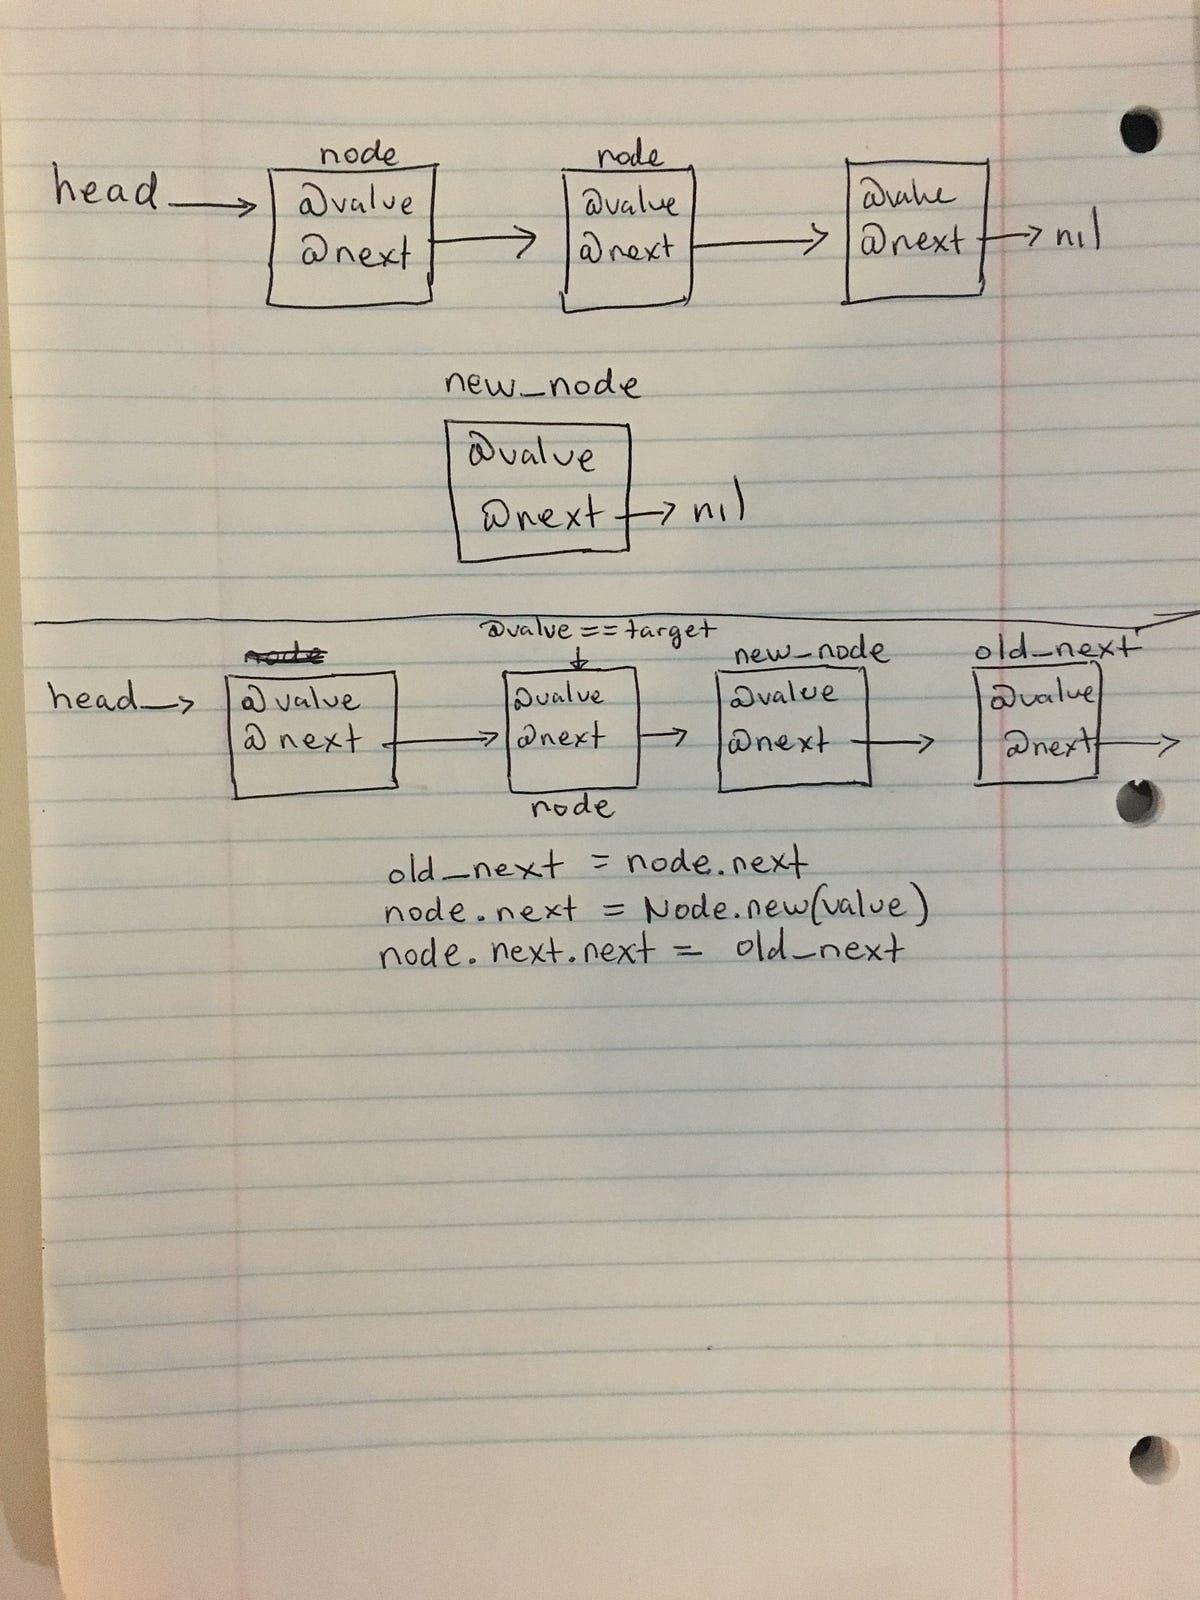 node node
head @value @value @value
@next @next @next nil
new_node
@value
@next nil
@value == target
node new_node old_next
head @value @value @value @value
@next @next @next @next
node
old_next = node.next
node.next = Node.new(value)
node.next.next = old_next